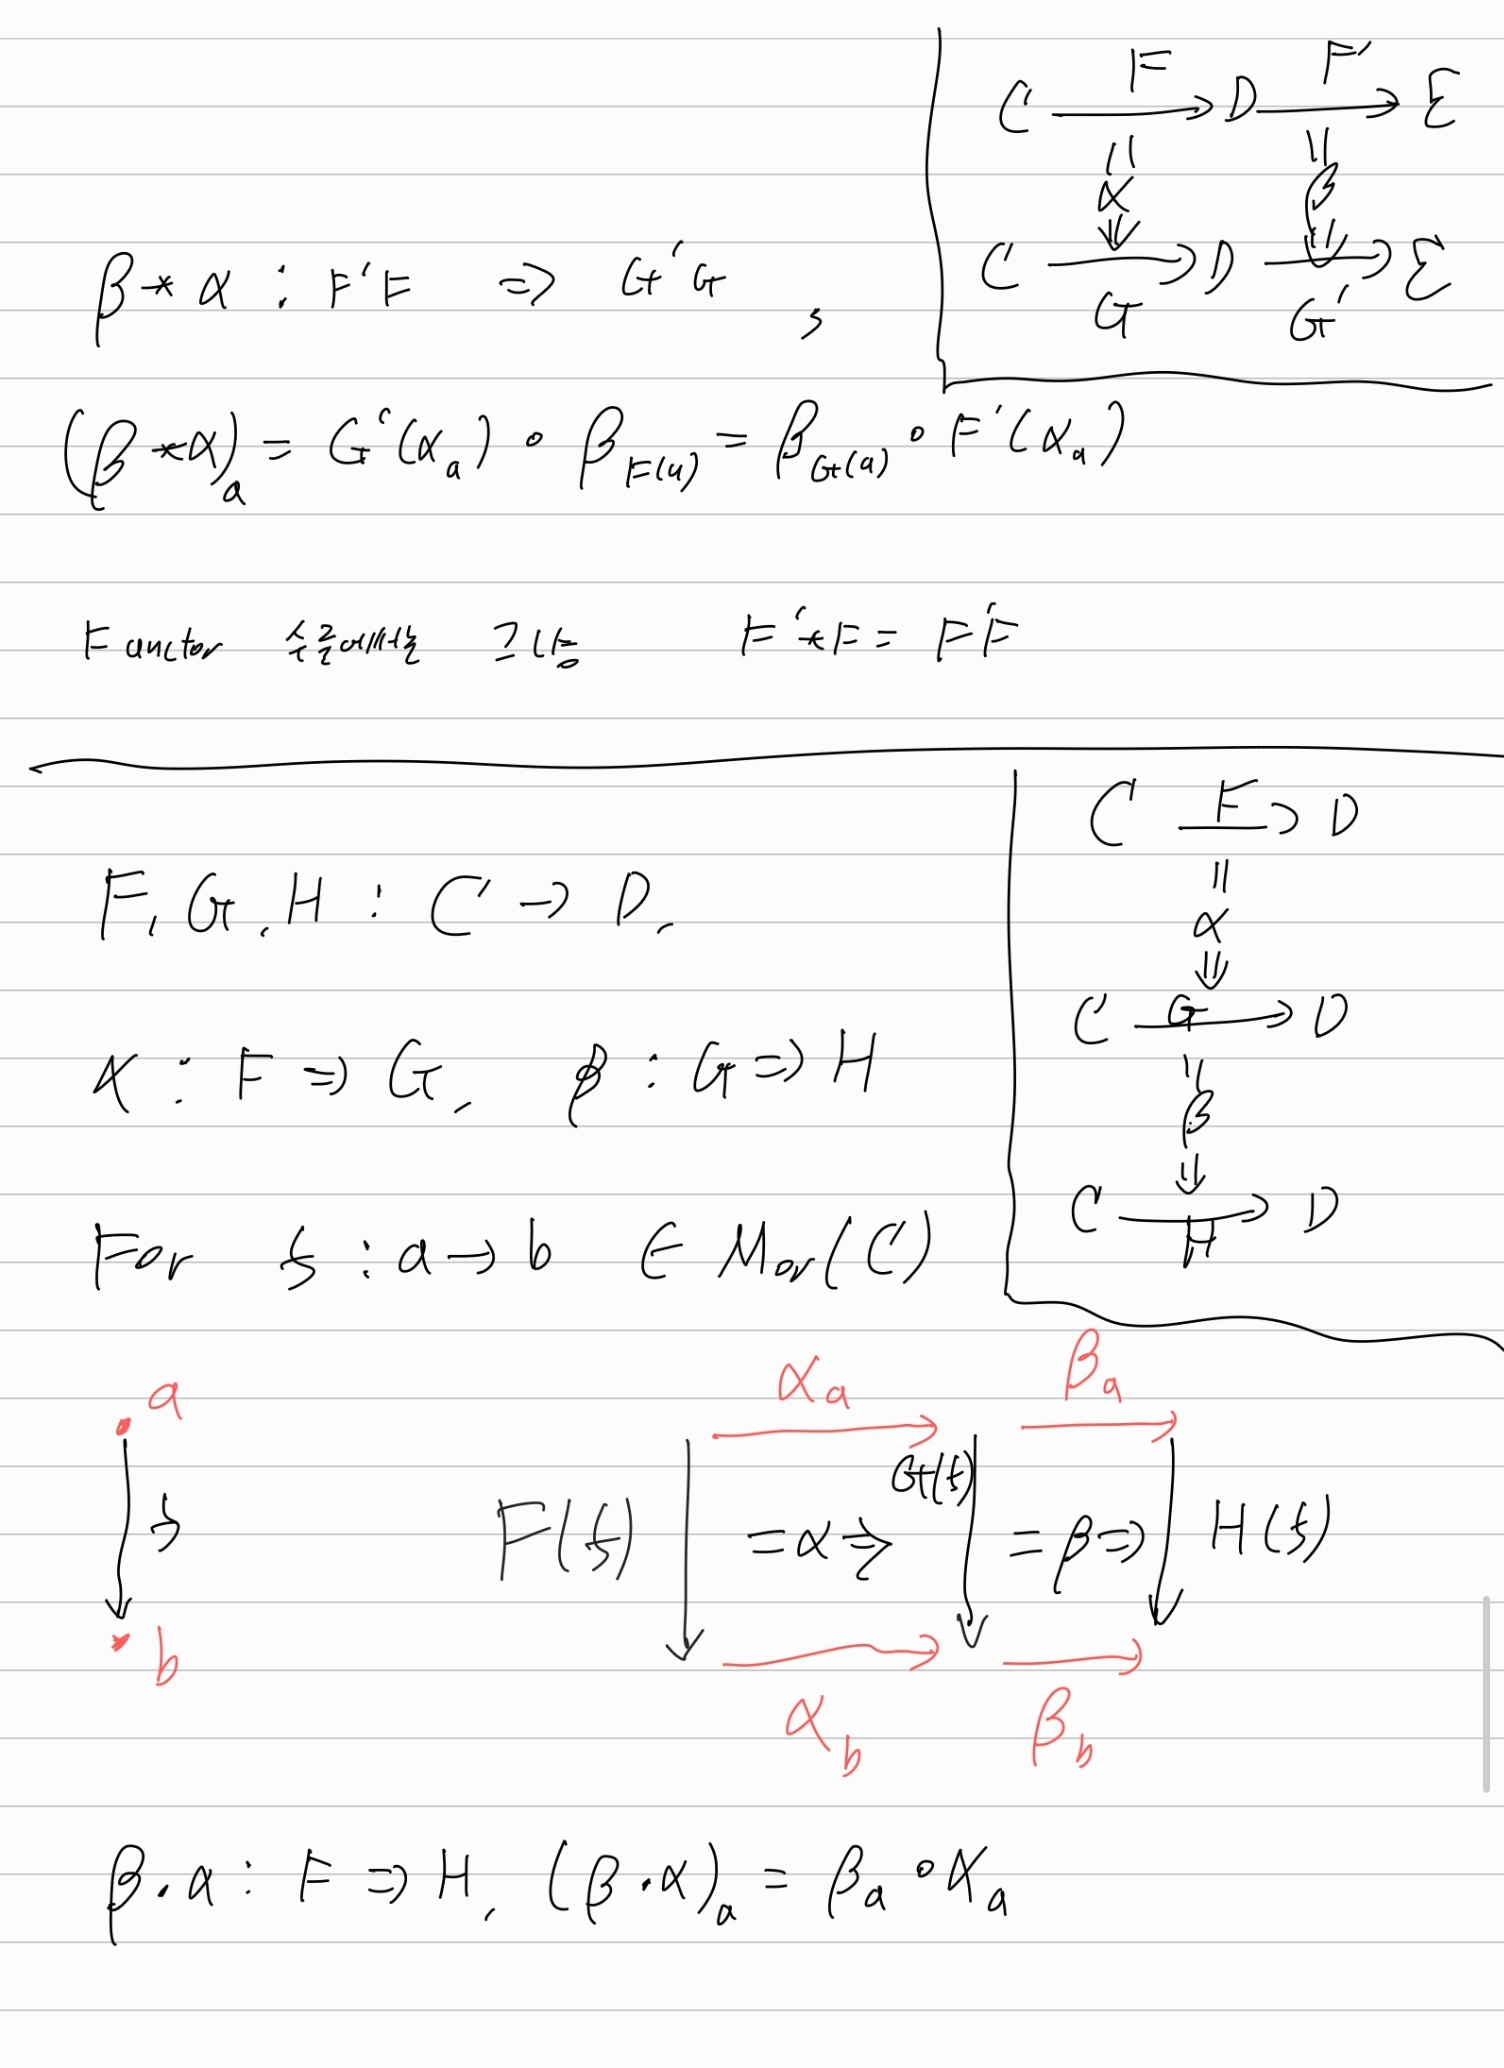 C F D F' E
α β
C G D G' E
β * α : F'F ⇒ G'G ,
(β * α)ₐ = G'(αₐ) ∘ β_F(a) = β_G(a) ∘ F'(αₐ)
Functor 수준에서는 그냥 F' * F = F'F
C F D
α
C G D
β
C H D
F, G, H : C → D,
α : F ⇒ G, β : G ⇒ H
For f : a → b ∈ Mor(C)
a αₐ βₐ
f F(f) = α ⇒ G(f) = β ⇒ H(f)
b α_b β_b
β · α : F ⇒ H, (β · α)ₐ = βₐ ∘ αₐ